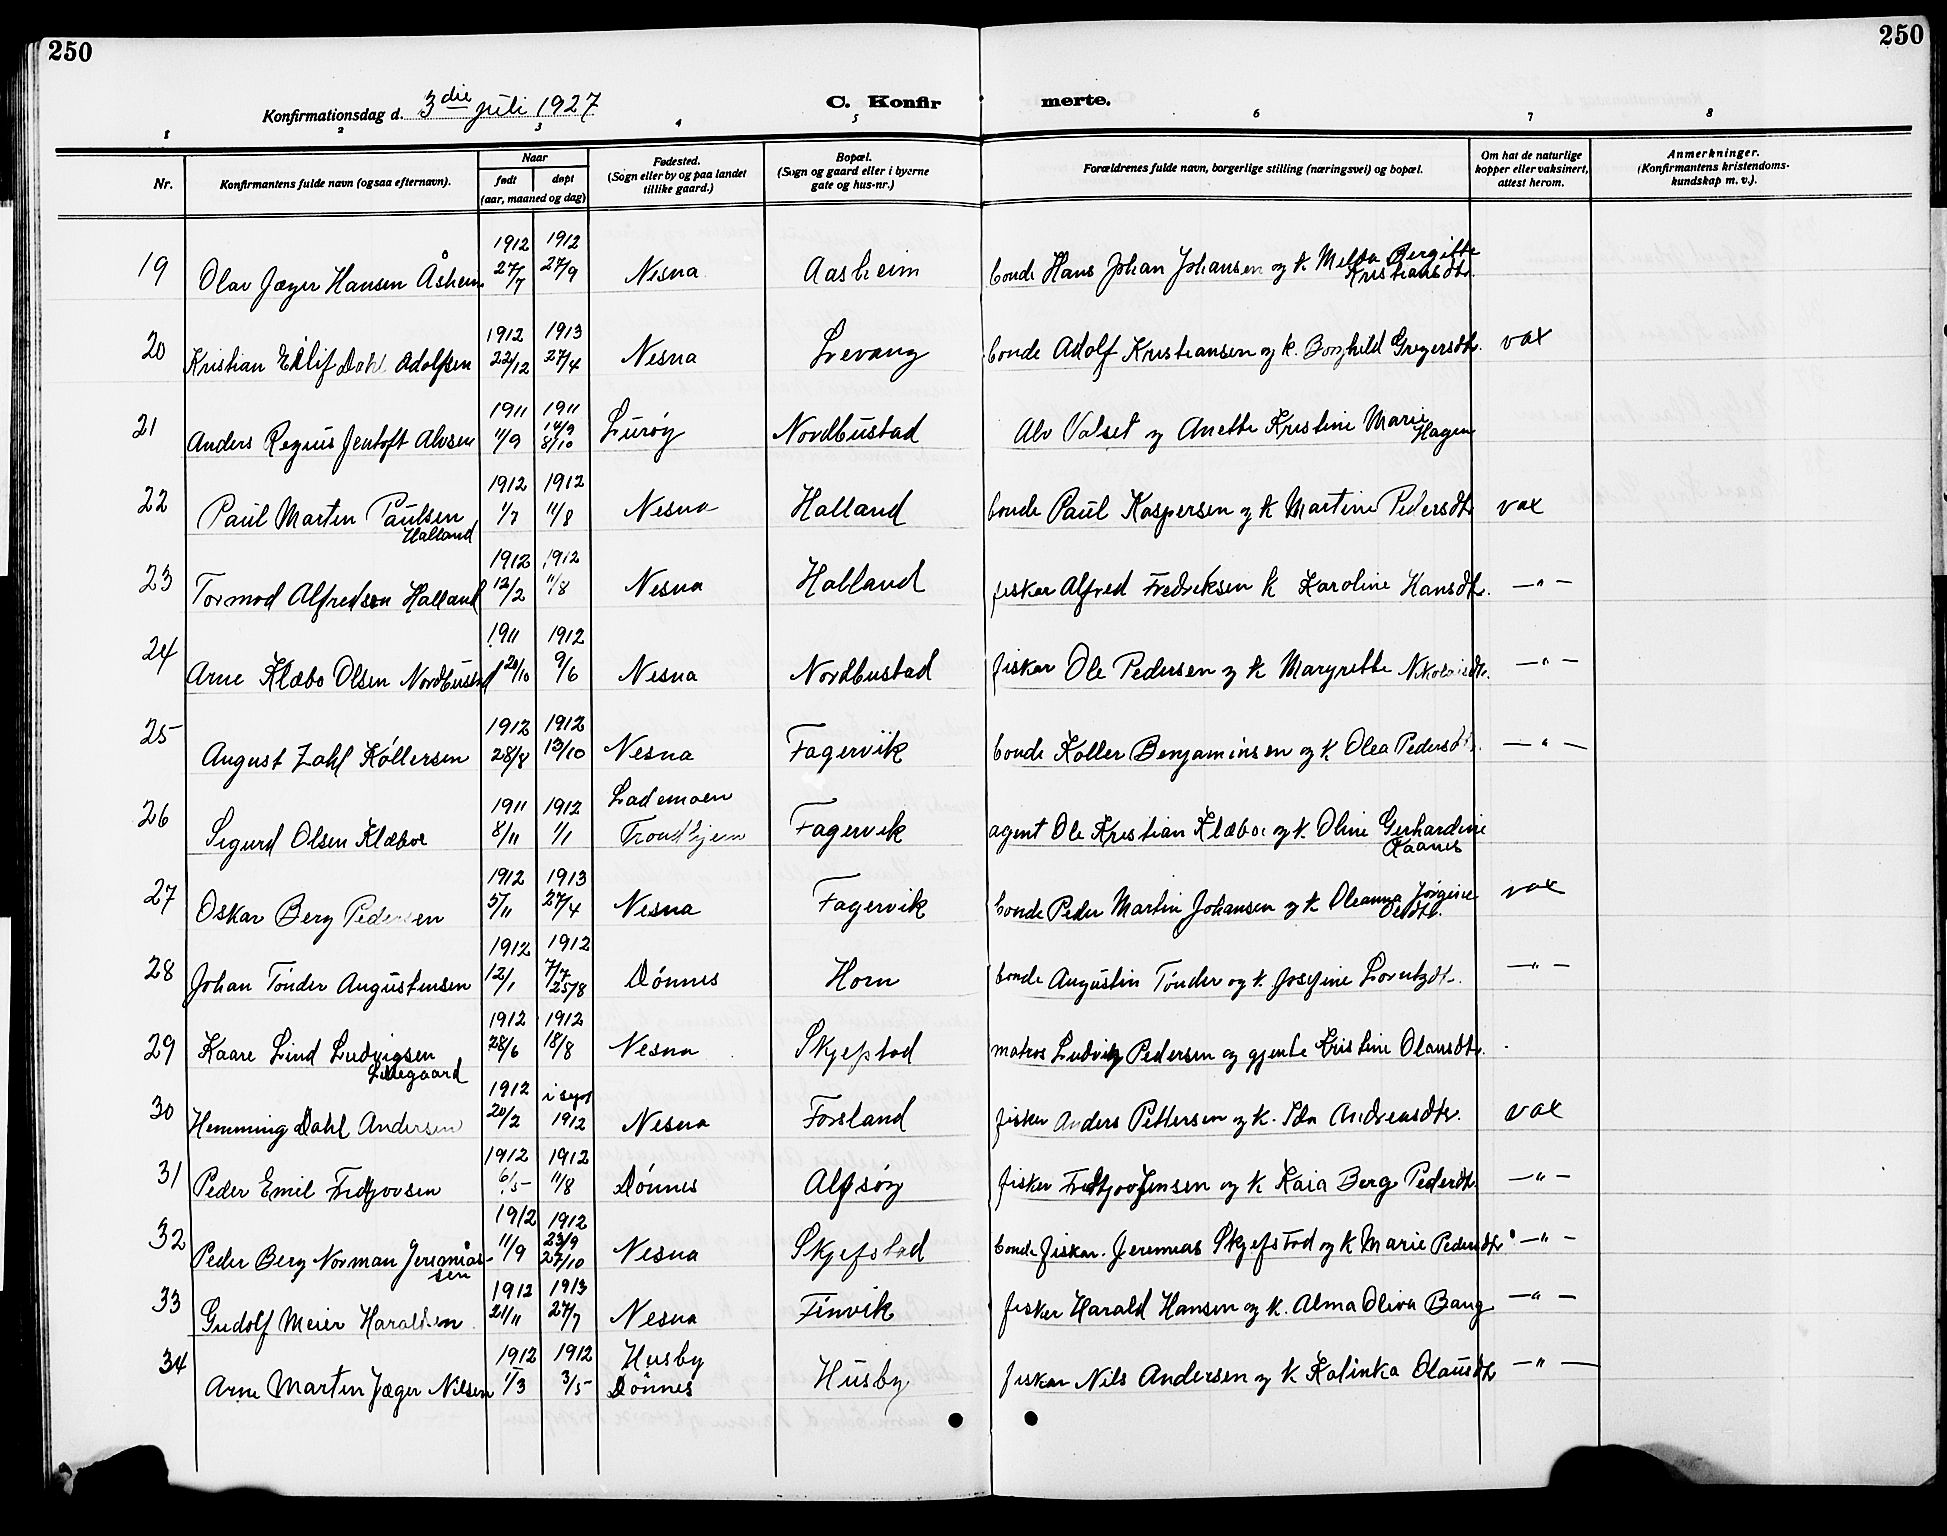 250
250
Konfirmationsdag d. 3die juli 1927
C. Konfirmerte.
1 2 3 4 5 6 7 8
Nr.
Konfirmantens fulde navn (ogsaa efternavn).
Naar
født
døpt
(aar, maaned og dag)
Fødested.
(Sogn eller by og paa landet
tillike gaard.)
Bopæl.
(Sogn og gaard eller i byerne
gate og hus-nr.)
Forældrenes fulde navn, borgerlige stilling (næringsvei) og bopæl.
Om hat de naturlige
kopper eller vaksinert,
attest herom.
Anmerkninger.
(Konfirmantens kristendoms-
kundskap m. v.).
19 Olav Jæger Hansen Åsheim 1912 27/7 1912 27/9 Nesna Aasheim bonde Hans Johan Johansen og k. Bergitte Kristiansdtr.
20 Kristian Eilif Dahl Adolfsen 1912 22/12 1913 27/4 Nesna Levang bonde Adolf Kristiansen og k. Borghild Gregersdtr. vax
21 Anders Regius Jentoft Alvsen 1911 1/9 1911 14/9 8/10 Lurøy Nordbustad Alv Valset og Anette Kristine Marie Hagen
22 Paul Martin Paulsen Halland 1912 1/7 1912 11/8 Nesna Halland bonde Paul Kaspersen og k Martine Pedersdtr vax
23 Tormod Alfredsen Halland 1912 12/2 1912 11/8 Nesna Halland fisker Alfred Fredriksen k Karoline Hansdtr. —"—
24 Arne Klæbo Olsen Nordbustad 1911 20/10 1912 9/6 Nesna Nordbustad fisker Ole Pedersen og k Margrethe —"—
25 August Zahl Køllersen 1912 28/8 1912 13/10 Nesna Fagervik bonde Køller Benjaminsen og k Olea Pedersdtr. —"—
26 Sigurd Olsen Klæboe 1911 8/11 1912 1/1 Lademoen Trondhjem Fagervik agent Ole Kristian Klæboe og k. Oline Gerhardine Raanes
27 Oskar Berg Pedersen 1912 5/11 1913 27/4 Nesna Fagervik bonde Peder Martin Johansen og k Oleanna Jørgine Olsdtr. vax
28 Johan Tønder Augustensen 1912 12/1 1912 7/7 25/8 Dønnes Horn bonde Augustin Tønder og k. Josefine Lorntzdtr. —"—
29 Kaare Lind Ludvigsen Lillegaard 1912 28/6 1912 18/8 Nesna Skjefstad matros Ludvig Pedersen og gjente Kristine Olausdtr.
30 Hemming Dahl Andersen 1912 20/2 i sept 1912 Nesna Forsland fisker Anders Pettersen og k. Ida Andreasdtr. vax
31 Peder Emil Fredtjovsen 1912 6/5 1912 11/8 Dønnes Alfsøy fisker Fredtjov Jensen og k Kaia Berg Pedersdtr. —"—
32 Peder Berg Norman Jeremias- sen 1912 11/9 1912 23/9 27/10 Nesna Skjefstad bonde fisker. Jeremias Skjefstad og k Marie Pedersdtr —"—
33 Gudolf Meier Haraldsen 1912 21/11 1913 27/7 Nesna Finvik fisker Harald Hansen og k. Alma Oliva Bang —"—
34 Arne Martin Jæger Nilsen 1912 1/3 1912 3/5 Husby Dønnes Husby fisker Nils Andersen og k Kalinka Olausdtr —"—